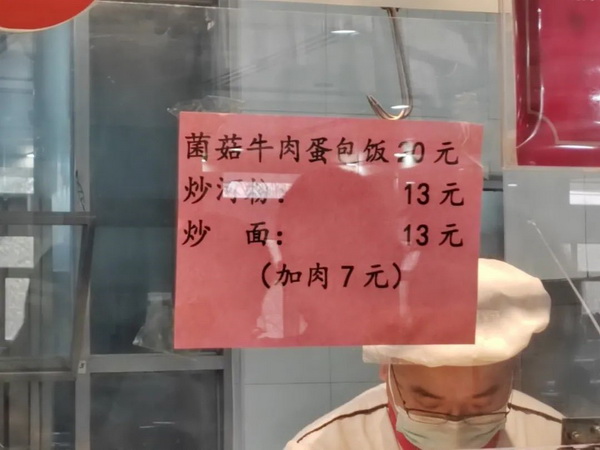 菌菇牛肉蛋包饭20元
炒河粉：13元
炒 面：13元
（加肉7元）